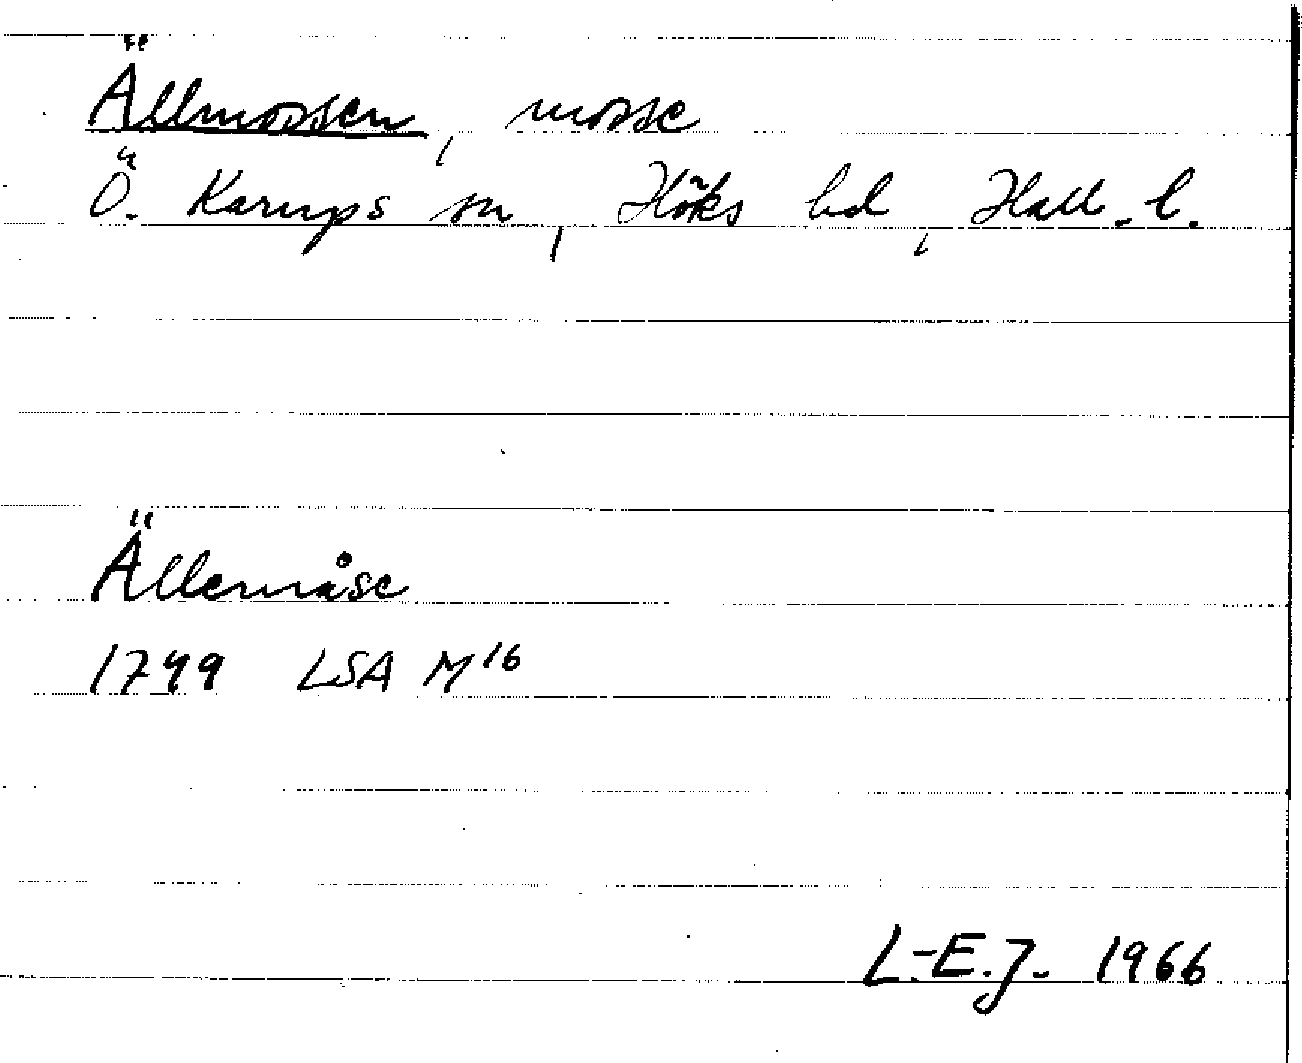 Ällmossen, mosse
Ö. Karups sn, Höks hd, Hall. l.
Ällemåse
1799 LSA M16
L.-E.J. 1966